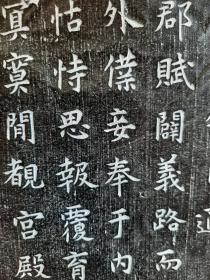 郡賦闢義路而
外僕妾奉于内
怙恃思報覆育
寞寞閒覩宮殿